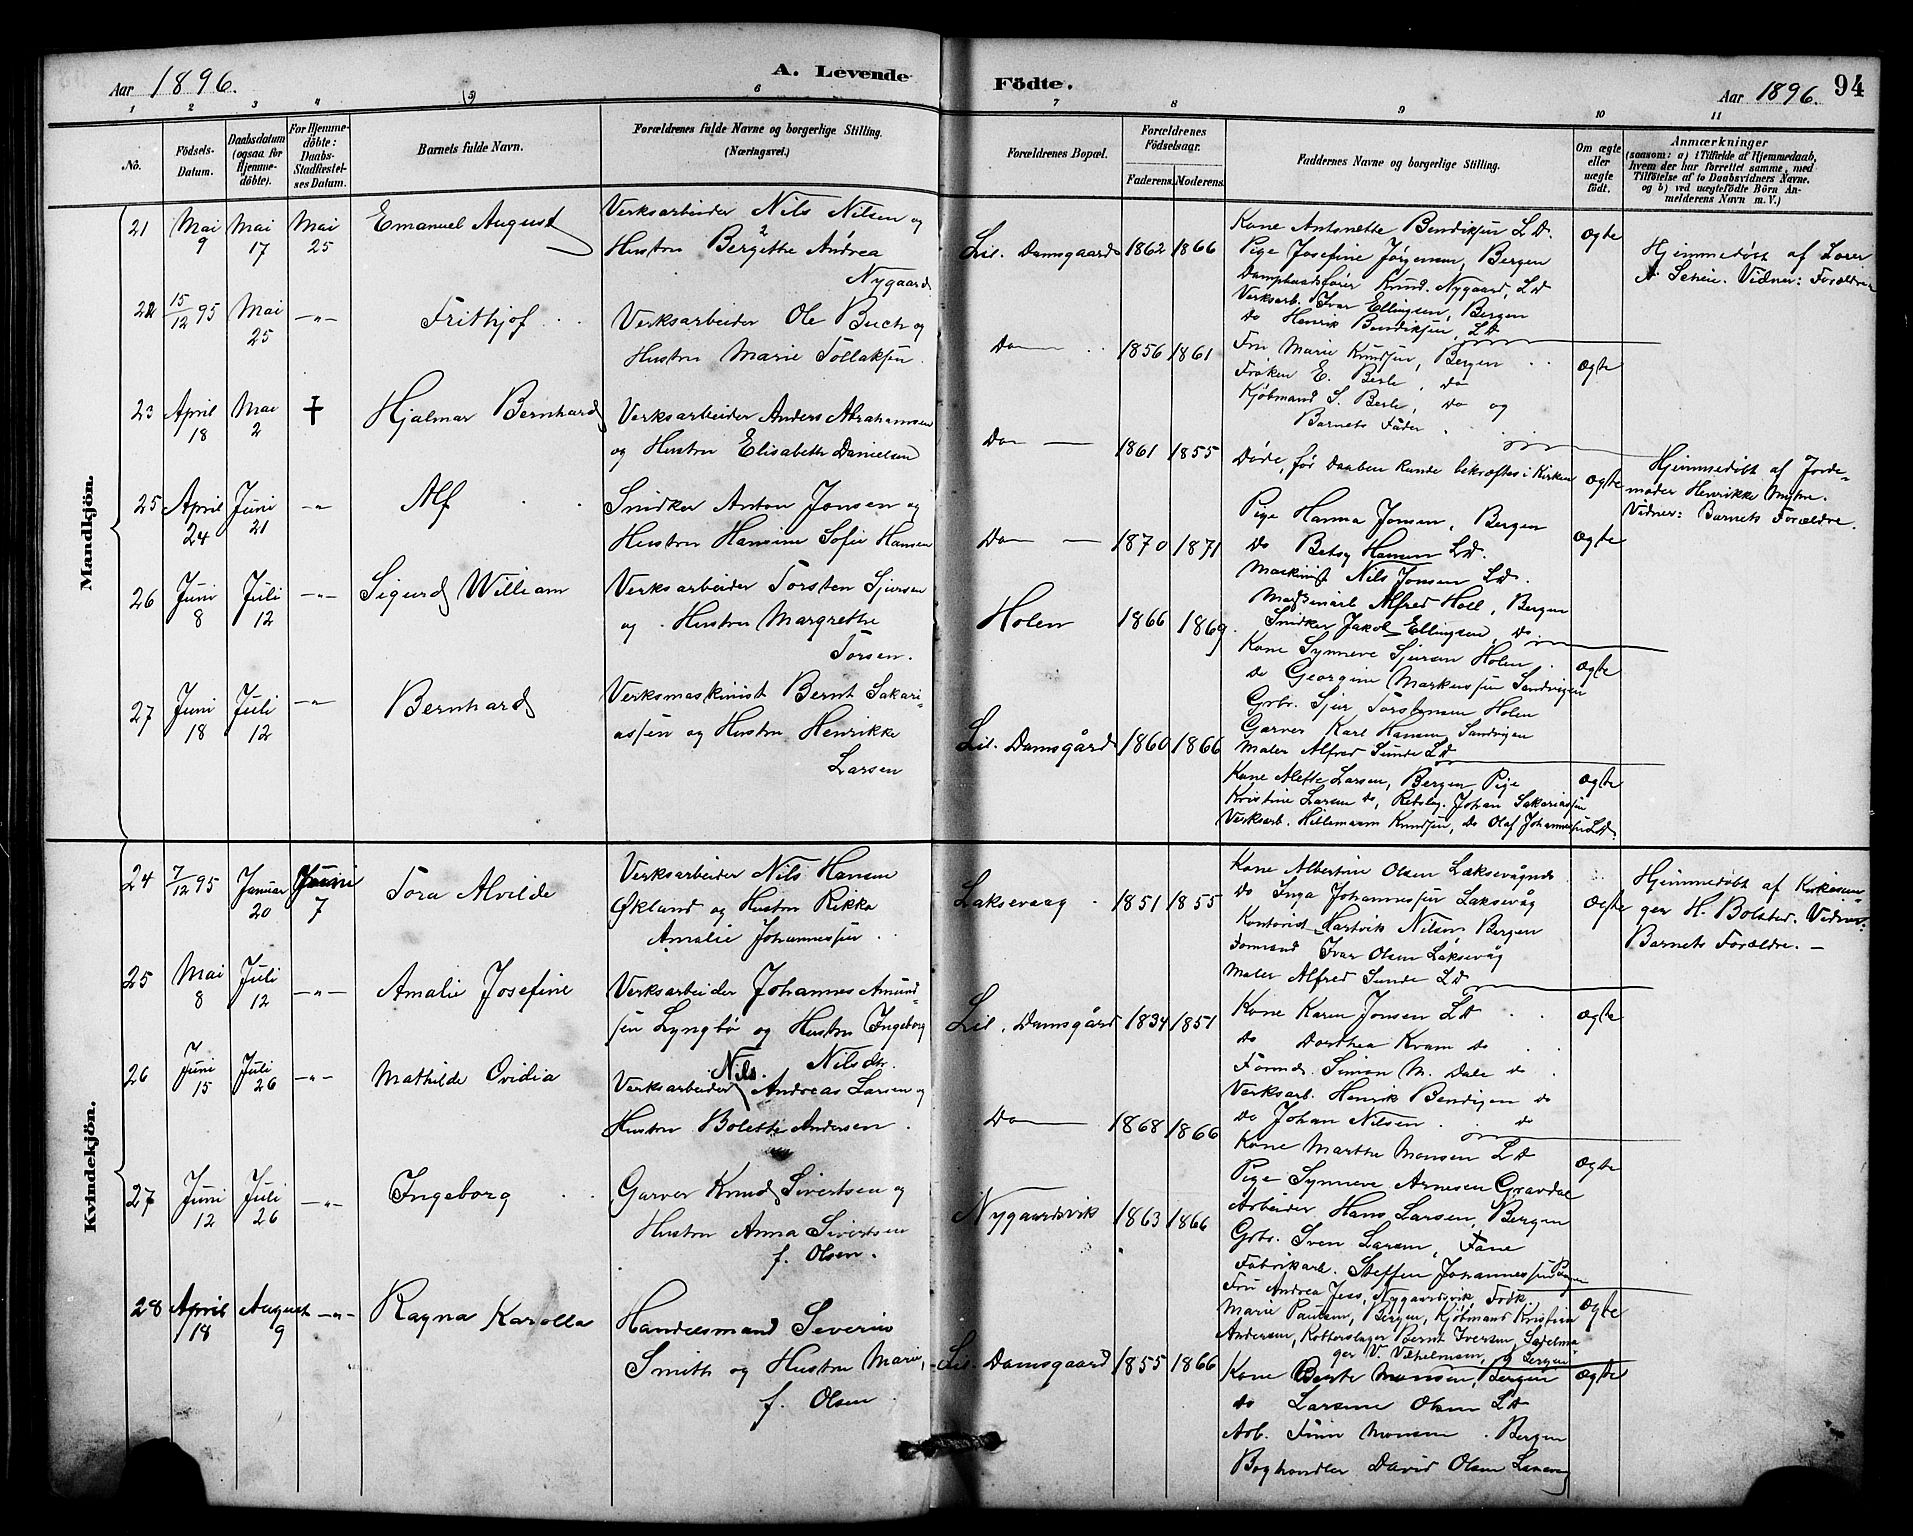 Aar 1896.
A. Levende
1 2 3 4 5 6
No.
Födsels-
Datum.
Daabsdatum
(ogsaa for
Hjemme-
döbte).
For Hjemme-
döbte:
Daabs-
Stadfæstel-
ses Datum.
Barnets fulde Navn.
Forældrenes fulde Navne og borgerlige Stilling.
(Næringsvei.)
Mandkjön.
21 Mai 9 Mai 17 Mai 25 Emanuel August
Verksarbeider Nils Nilsen og
Hustru Bergethe Andrea
Nygaard.
22 15/12 95 Mai 25 -"- Frithjof
Verksarbeider Ole Buch og
Hustru Marie Tollaksen
23 April 18 Mai 2 † Hjalmar Bernhard
Verksarbeider Anders Abrahamsen
og Hustru Elisabeth Danielsen
25 April 24 Juni 21 -"- Alf
Snidker Anton Jonsen og
Hustru Hansine Sofie Hansen
26 Juni 8 Juli 12 -"- Sigurd William
Verksarbeider Torsten Sjursen
og Hustru Margrethe
Torsen.
27 Juni 18 Juli 12 -"- Bernhard
Verksmaskinist Bernt Sakari-
assen og Hustru Henrikke
Larsen
Kvindekjön.
24 7/12 95 Januar 20 Juni 7 Tora Alvilde
Verksarbeider Nils Hansen
Økland og Hustru Rikka
Amalie Johannessen
25 Mai 8 Juli 12 -"- Amalie Josefine
Verksarbeider Johannes Amund-
sen Lyngbø og Hustru Ingeborg
Nilsdtr.
26 Juni 15 Juli 26 -"- Mathilde Ovidia
Nils
Verksarbeider Andreas Larsen og
Hustru Bolette Andersen
27 Juni 12 Juli 26 -"- Ingeborg
Garver Knud Sivertsen og
Hustru Anna Sivertsen
f. Olsen.
28 April 18 August 9 -"- Ragna Karolla
Handelsmand Severin
Smith og Hustru Marie,
f. Olsen
Födte.
Aar 1896. 94
7 8 9 10 11
Forældrenes Bopæl.
Forældrenes
Födselsaar.
Faderens. Moderens.
Faddernes Navne og borgerlige Stilling.
Om ægte
eller
uægte
födt.
Anmærkninger
(saasom: a) i Tilfælde af Hjemmedaab,
hvem der har forrettet samme, med
Tilföielse af to Daabsvidners Navne.
og b) ved uægtefödte Börn An-
melderens Navn m. V.)
Lil. Damsgaard 1862 1866
Kone Antonette Bendiksen L D.
Pige Josefine Jørgensen, Bergen
Dampbaadsfører Knud Nygaard, LD
Verksarb. Ivar Ellingsen, Bergen
do Henrik Bendiksen, LD
Ægte
Hjemmedøbt af Lærer
A Scheie. Vidner: Forældre
Do 1856 1861
Fru Marie Knudsen, Bergen
Frøken E. Berle, do
Kjøbmand S. Berle, do og
Barnets Fader
Ægte
Do 1861 1855
Døde, før Daaben kunde bekræftes i Kirken
Ægte
Hjemmedøbt af Jorde-
moder Henrikke Myhre.
Vidner: Barnets Forældre.
Do 1870 1871
Pige Hanna Jonsen, Bergen
Do Betsy Hansen LD.
Maskinist Nils Jonsen LD.
Maskinarb Alfred Holl, Bergen
Snidker Jakob Ellingsen, do
Ægte
Holen 1866 1869.
Kone Synneve Sjursen Holen
do Georgine Markussen Sandvigen
Grbr. Sjur Torstensen Holen
Garver Karl Hansen, Sandvigen
Maler Alfred Sunde LD
Ægte
Lil. Damsgård 1860 1866
Kone Alette Larsen, Bergen Pige
Kristine Larsen do, Rebslag. Johan Sakariassen
Verksarb. Hillemann Knudsen, do Olaf Johannessen LD.
Ægte
Laksevaag 1851 1855
Kone Albertine Olsen Laksevågnd
Do Inga Johannessen Laksevåg
Kontorist Hartvik Nilsen Bergen
Formand Ivar Olsen Laksevåg
Maler Alfred Sunde LD
Ægte
Hjemmedøbt af Kirkesan-
ger H. Bolstad. Vidner:
Barnets Forældre. –
Lil. Damsgård 1834 1851
Kone Karen Jonsen LD
do Dorthea Kvam do
Formd. Simon M. Dale do
Verksarb. Henrik Bendixen do
Do Johan Nilsen do
Ægte
Do 1868 1866
Kone Marthe Monsen LD
Pige Synneve Arnesen Gravdal
Arbeider Hans Larsen, Bergen
Grbr. Sven Larsen, Fane
Fabrikarb. Steffen Johannessen Bergen
Ægte
Nygaardsvik 1863 1866
Fru Andrea Jess, Nygaardsvik, Frøk
Marie Paulsen, Bergen, Kjøbmand Kristian
Andersen, Kobberslager Bernt Iversen, Sadelma
ger V. Vilhelmsen, Bergen
Ægte
Lil. Damsgaard 1855 1866
Kone Bente Monsen, Bergen
do Larsine Olsen LD
Arb. Finn Monsen. Bergen
Boghandler David Olsen Laksevåg
Ægte